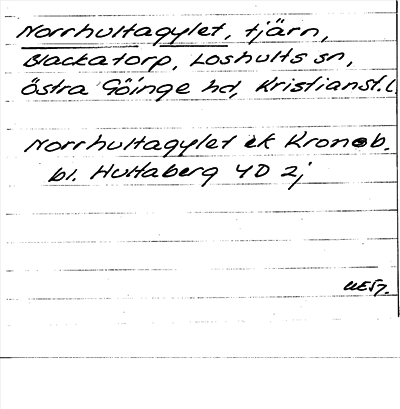 Norrhultagylet, tjärn,
Blackatorp, Loshults sn,
Östra Göinge hd, Kristianst.l.
Norrhultagylet ek Kronob.
bl. Hultaberg 4D 2j